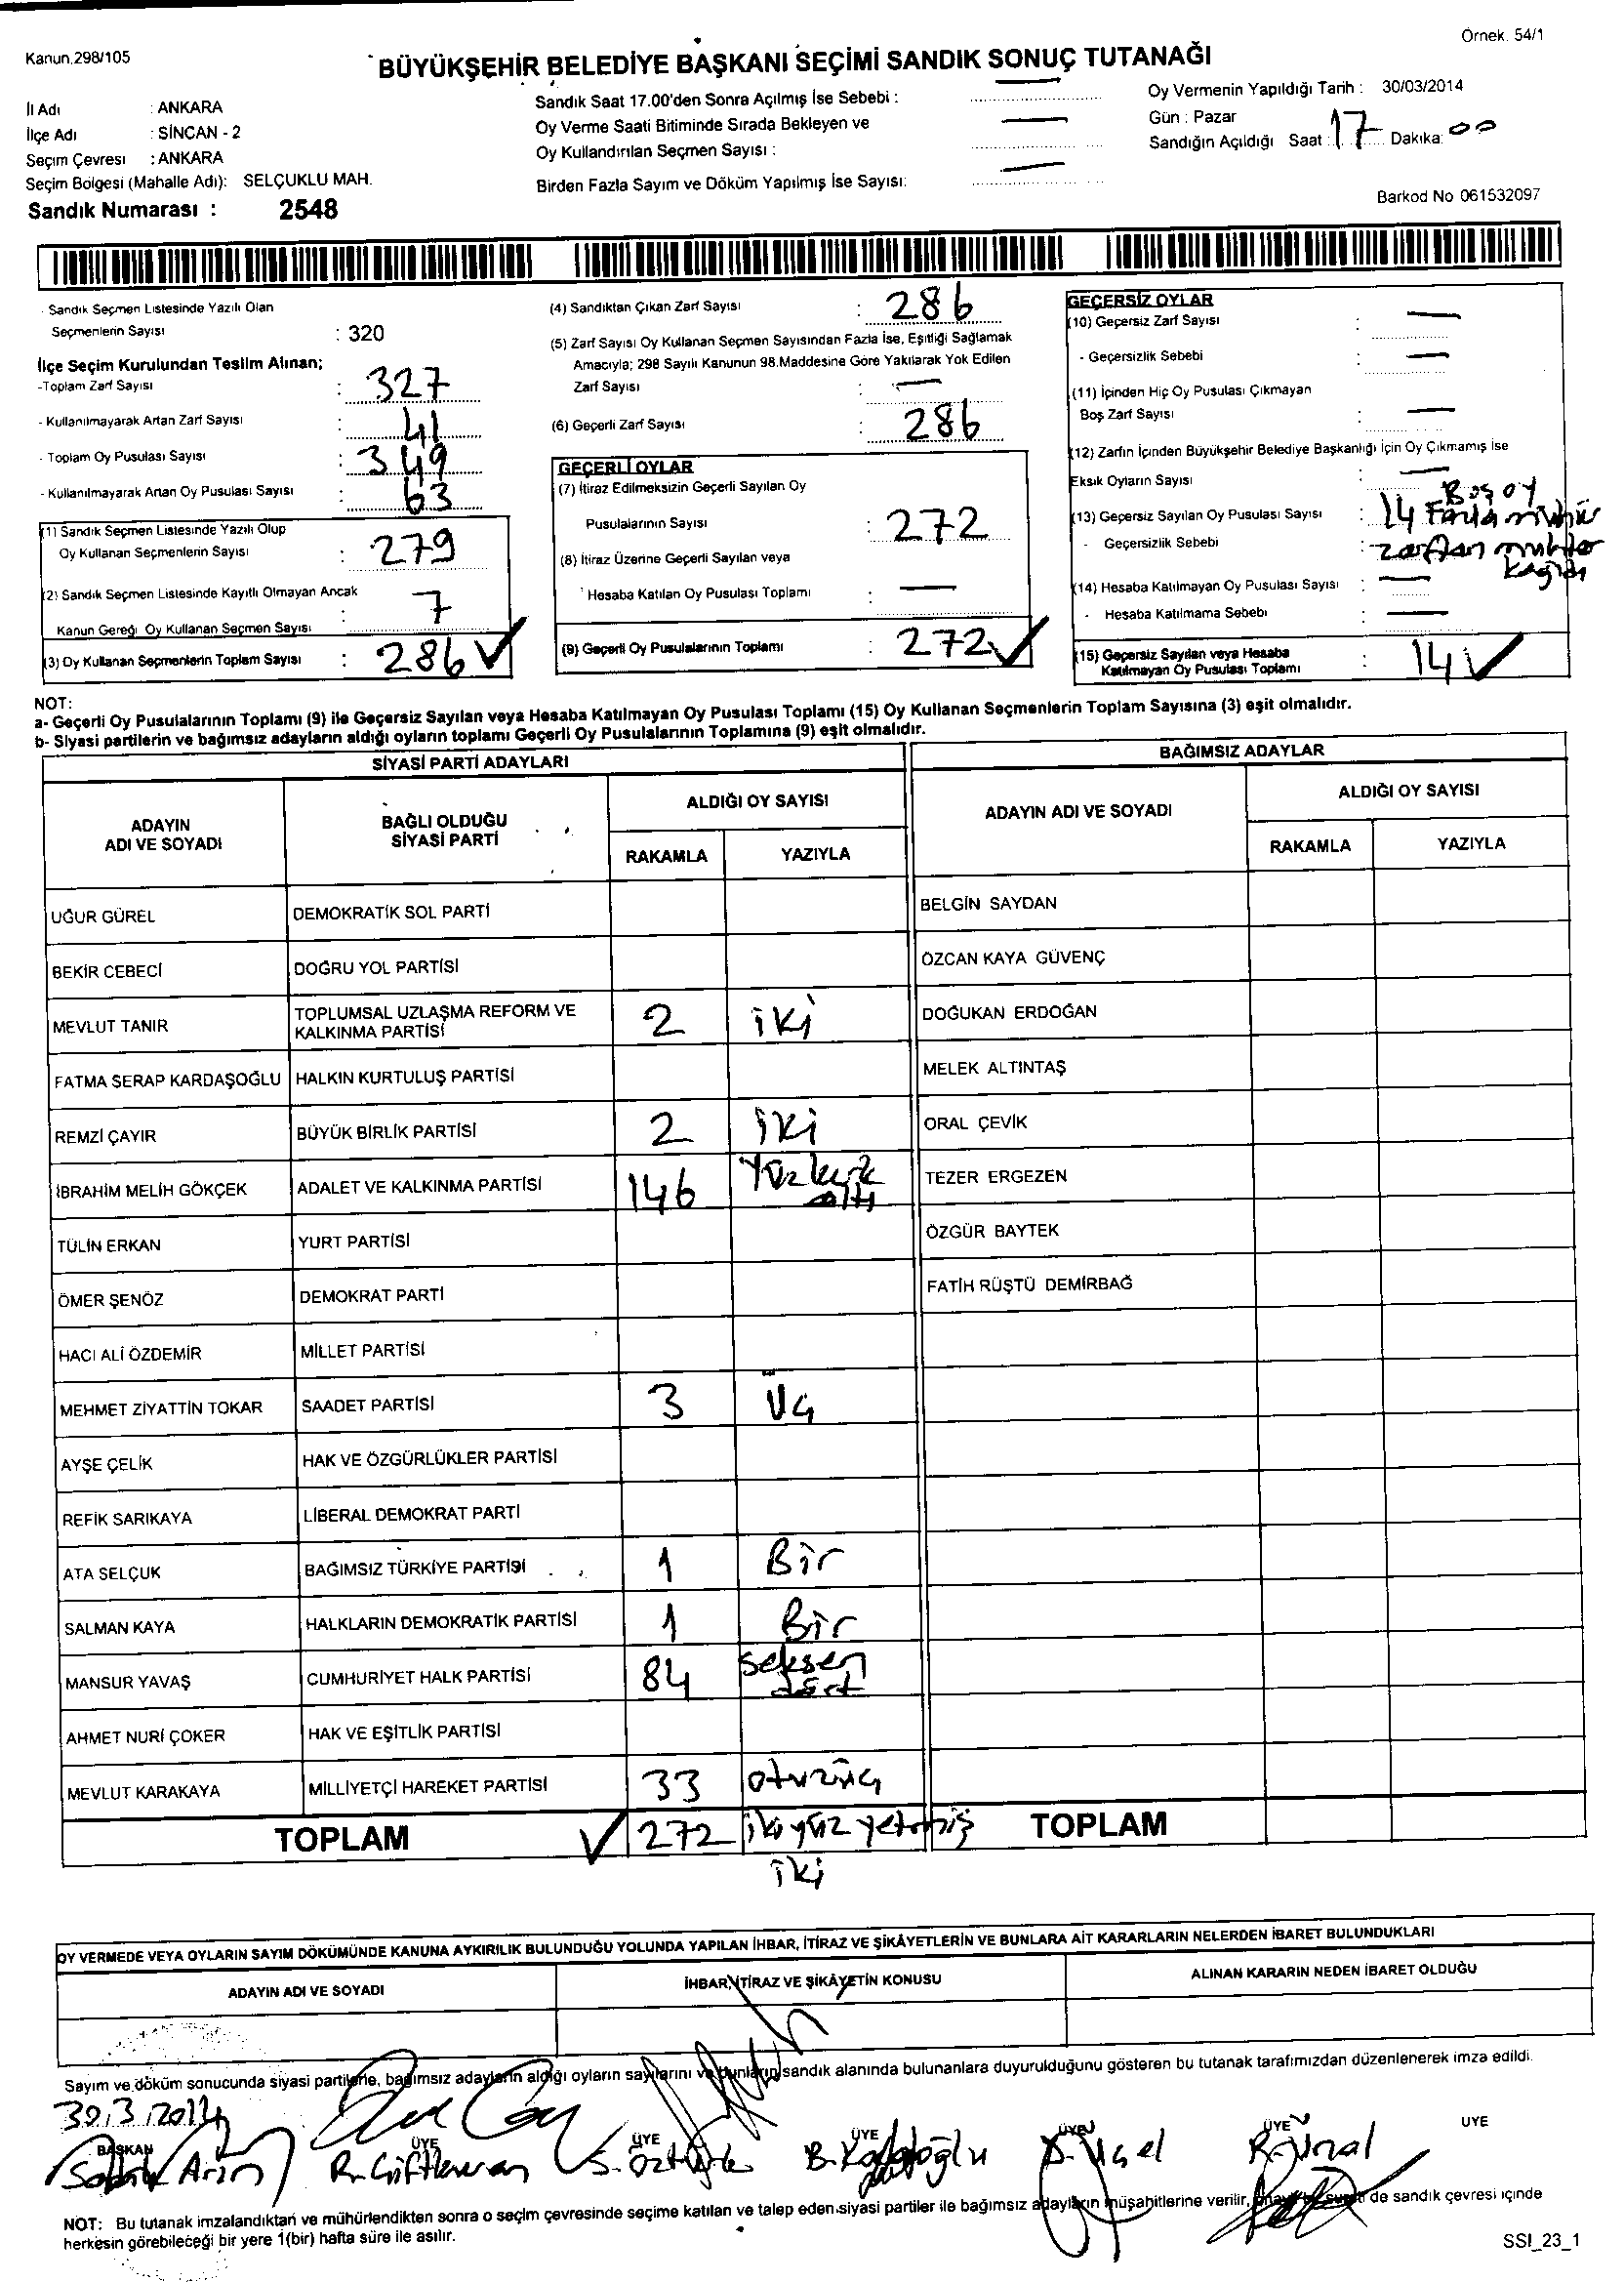 Örnek. 54/1
Kanun.298/105
BÜYÜKŞEHİR BELEDİYE BAŞKANI SEÇİMİ SANDIK SONUÇ TUTANAĞI
İl Adı : ANKARA
İlçe Adı : SİNCAN - 2
Seçim Çevresi : ANKARA
Seçim Bölgesi (Mahalle Adı): SELÇUKLU MAH.
Sandık Numarası : 2548
Sandık Saat 17.00'den Sonra Açılmış İse Sebebi :
Oy Verme Saati Bitiminde Sırada Bekleyen ve
Oy Kullandırılan Seçmen Sayısı :
Birden Fazla Sayım ve Döküm Yapılmış İse Sayısı:
Oy Vermenin Yapıldığı Tarih : 30/03/2014
Gün : Pazar
Sandığın Açıldığı Saat : 17 Dakika: 00
Barkod No 061532097
- Sandık Seçmen Listesinde Yazılı Olan
Seçmenlerin Sayısı : 320
İlçe Seçim Kurulundan Teslim Alınan;
-Toplam Zarf Sayısı : 327
- Kullanılmayarak Artan Zarf Sayısı : 41
- Toplam Oy Pusulası Sayısı : 349
- Kullanılmayarak Artan Oy Pusulası Sayısı : 63
(1) Sandık Seçmen Listesinde Yazılı Olup
Oy Kullanan Seçmenlerin Sayısı : 279
(2) Sandık Seçmen Listesinde Kayıtlı Olmayan Ancak
Kanun Gereği Oy Kullanan Seçmen Sayısı : 7
(3) Oy Kullanan Seçmenlerin Toplam Sayısı : 286 ✓
(4) Sandıktan Çıkan Zarf Sayısı : 286
(5) Zarf Sayısı Oy Kullanan Seçmen Sayısından Fazla İse, Eşitliği Sağlamak
Amacıyla; 298 Sayılı Kanunun 98.Maddesine Göre Yakılarak Yok Edilen
Zarf Sayısı : —
(6) Geçerli Zarf Sayısı : 286
GEÇERLİ OYLAR
(7) İtiraz Edilmeksizin Geçerli Sayılan Oy
Pusulalarının Sayısı : 272
(8) İtiraz Üzerine Geçerli Sayılan veya
Hesaba Katılan Oy Pusulası Toplamı : —
(9) Geçerli Oy Pusulalarının Toplamı : 272 ✓
GEÇERSİZ OYLAR
(10) Geçersiz Zarf Sayısı : —
- Geçersizlik Sebebi : —
(11) İçinden Hiç Oy Pusulası Çıkmayan
Boş Zarf Sayısı : —
(12) Zarfın İçinden Büyükşehir Belediye Başkanlığı İçin Oy Çıkmamış İse
Eksik Oyların Sayısı : —
Boş oy
(13) Geçersiz Sayılan Oy Pusulası Sayısı : 14 Fazla mühür
- Geçersizlik Sebebi : zarftan muhtar
kağıdı
(14) Hesaba Katılmayan Oy Pusulası Sayısı : —
- Hesaba Katılmama Sebebi : —
(15) Geçersiz Sayılan veya Hesaba
Katılmayan Oy Pusulası Toplamı : 14 ✓
NOT:
a- Geçerli Oy Pusulalarının Toplamı (9) ile Geçersiz Sayılan veya Hesaba Katılmayan Oy Pusulası Toplamı (15) Oy Kullanan Seçmenlerin Toplam Sayısına (3) eşit olmalıdır.
b- Siyasi partilerin ve bağımsız adayların aldığı oyların toplamı Geçerli Oy Pusulalarının Toplamına (9) eşit olmalıdır.
SİYASİ PARTİ ADAYLARI
ADAYIN
ADI VE SOYADI
BAĞLI OLDUĞU
SİYASİ PARTİ
ALDIĞI OY SAYISI
RAKAMLA YAZIYLA
UĞUR GÜREL DEMOKRATİK SOL PARTİ
BEKİR CEBECİ DOĞRU YOL PARTİSİ
MEVLUT TANIR TOPLUMSAL UZLAŞMA REFORM VE
KALKINMA PARTİSİ 2 iki
FATMA SERAP KARDAŞOĞLU HALKIN KURTULUŞ PARTİSİ
REMZİ ÇAYIR BÜYÜK BİRLİK PARTİSİ 2 iki
İBRAHİM MELİH GÖKÇEK ADALET VE KALKINMA PARTİSİ 146 Yüzkırk
altı
TÜLİN ERKAN YURT PARTİSİ
ÖMER ŞENÖZ DEMOKRAT PARTİ
HACI ALİ ÖZDEMİR MİLLET PARTİSİ
MEHMET ZİYATTİN TOKAR SAADET PARTİSİ 3 Üç
AYŞE ÇELİK HAK VE ÖZGÜRLÜKLER PARTİSİ
REFİK SARIKAYA LİBERAL DEMOKRAT PARTİ
ATA SELÇUK BAĞIMSIZ TÜRKİYE PARTİSİ 1 Bir
SALMAN KAYA HALKLARIN DEMOKRATİK PARTİSİ 1 Bir
MANSUR YAVAŞ CUMHURİYET HALK PARTİSİ 84 seksen
dört
AHMET NURİ ÇOKER HAK VE EŞİTLİK PARTİSİ
MEVLUT KARAKAYA MİLLİYETÇİ HAREKET PARTİSİ 33 otuzüç
TOPLAM ✓ 272 ikiyüz yetmiş
iki
BAĞIMSIZ ADAYLAR
ADAYIN ADI VE SOYADI
ALDIĞI OY SAYISI
RAKAMLA YAZIYLA
BELGİN SAYDAN
ÖZCAN KAYA GÜVENÇ
DOĞUKAN ERDOĞAN
MELEK ALTINTAŞ
ORAL ÇEVİK
TEZER ERGEZEN
ÖZGÜR BAYTEK
FATİH RÜŞTÜ DEMİRBAĞ
TOPLAM
OY VERMEDE VEYA OYLARIN SAYIM DÖKÜMÜNDE KANUNA AYKIRILIK BULUNDUĞU YOLUNDA YAPILAN İHBAR, İTİRAZ VE ŞİKÂYETLERİN VE BUNLARA AİT KARARLARIN NELERDEN İBARET BULUNDUKLARI
ADAYIN ADI VE SOYADI İHBAR, İTİRAZ VE ŞİKÂYETİN KONUSU ALINAN KARARIN NEDEN İBARET OLDUĞU
Sayım ve döküm sonucunda siyasi partilerle, bağımsız adayların aldığı oyların sayılarını ve bunların sandık alanında bulunanlara duyurulduğunu gösteren bu tutanak tarafımızdan düzenlenerek imza edildi.
30.3.2014
BAŞKAN ÜYE ÜYE ÜYE ÜYE ÜYE ÜYE
S. Öztürk R. Ünal
NOT: Bu tutanak imzalandıktan ve mühürlendikten sonra o seçim çevresinde seçime katılan ve talep eden siyasi partiler ile bağımsız adayların müşahitlerine verilir, de sandık çevresi içinde
herkesin görebileceği bir yere 1(bir) hafta süre ile asılır.
SSI_23_1